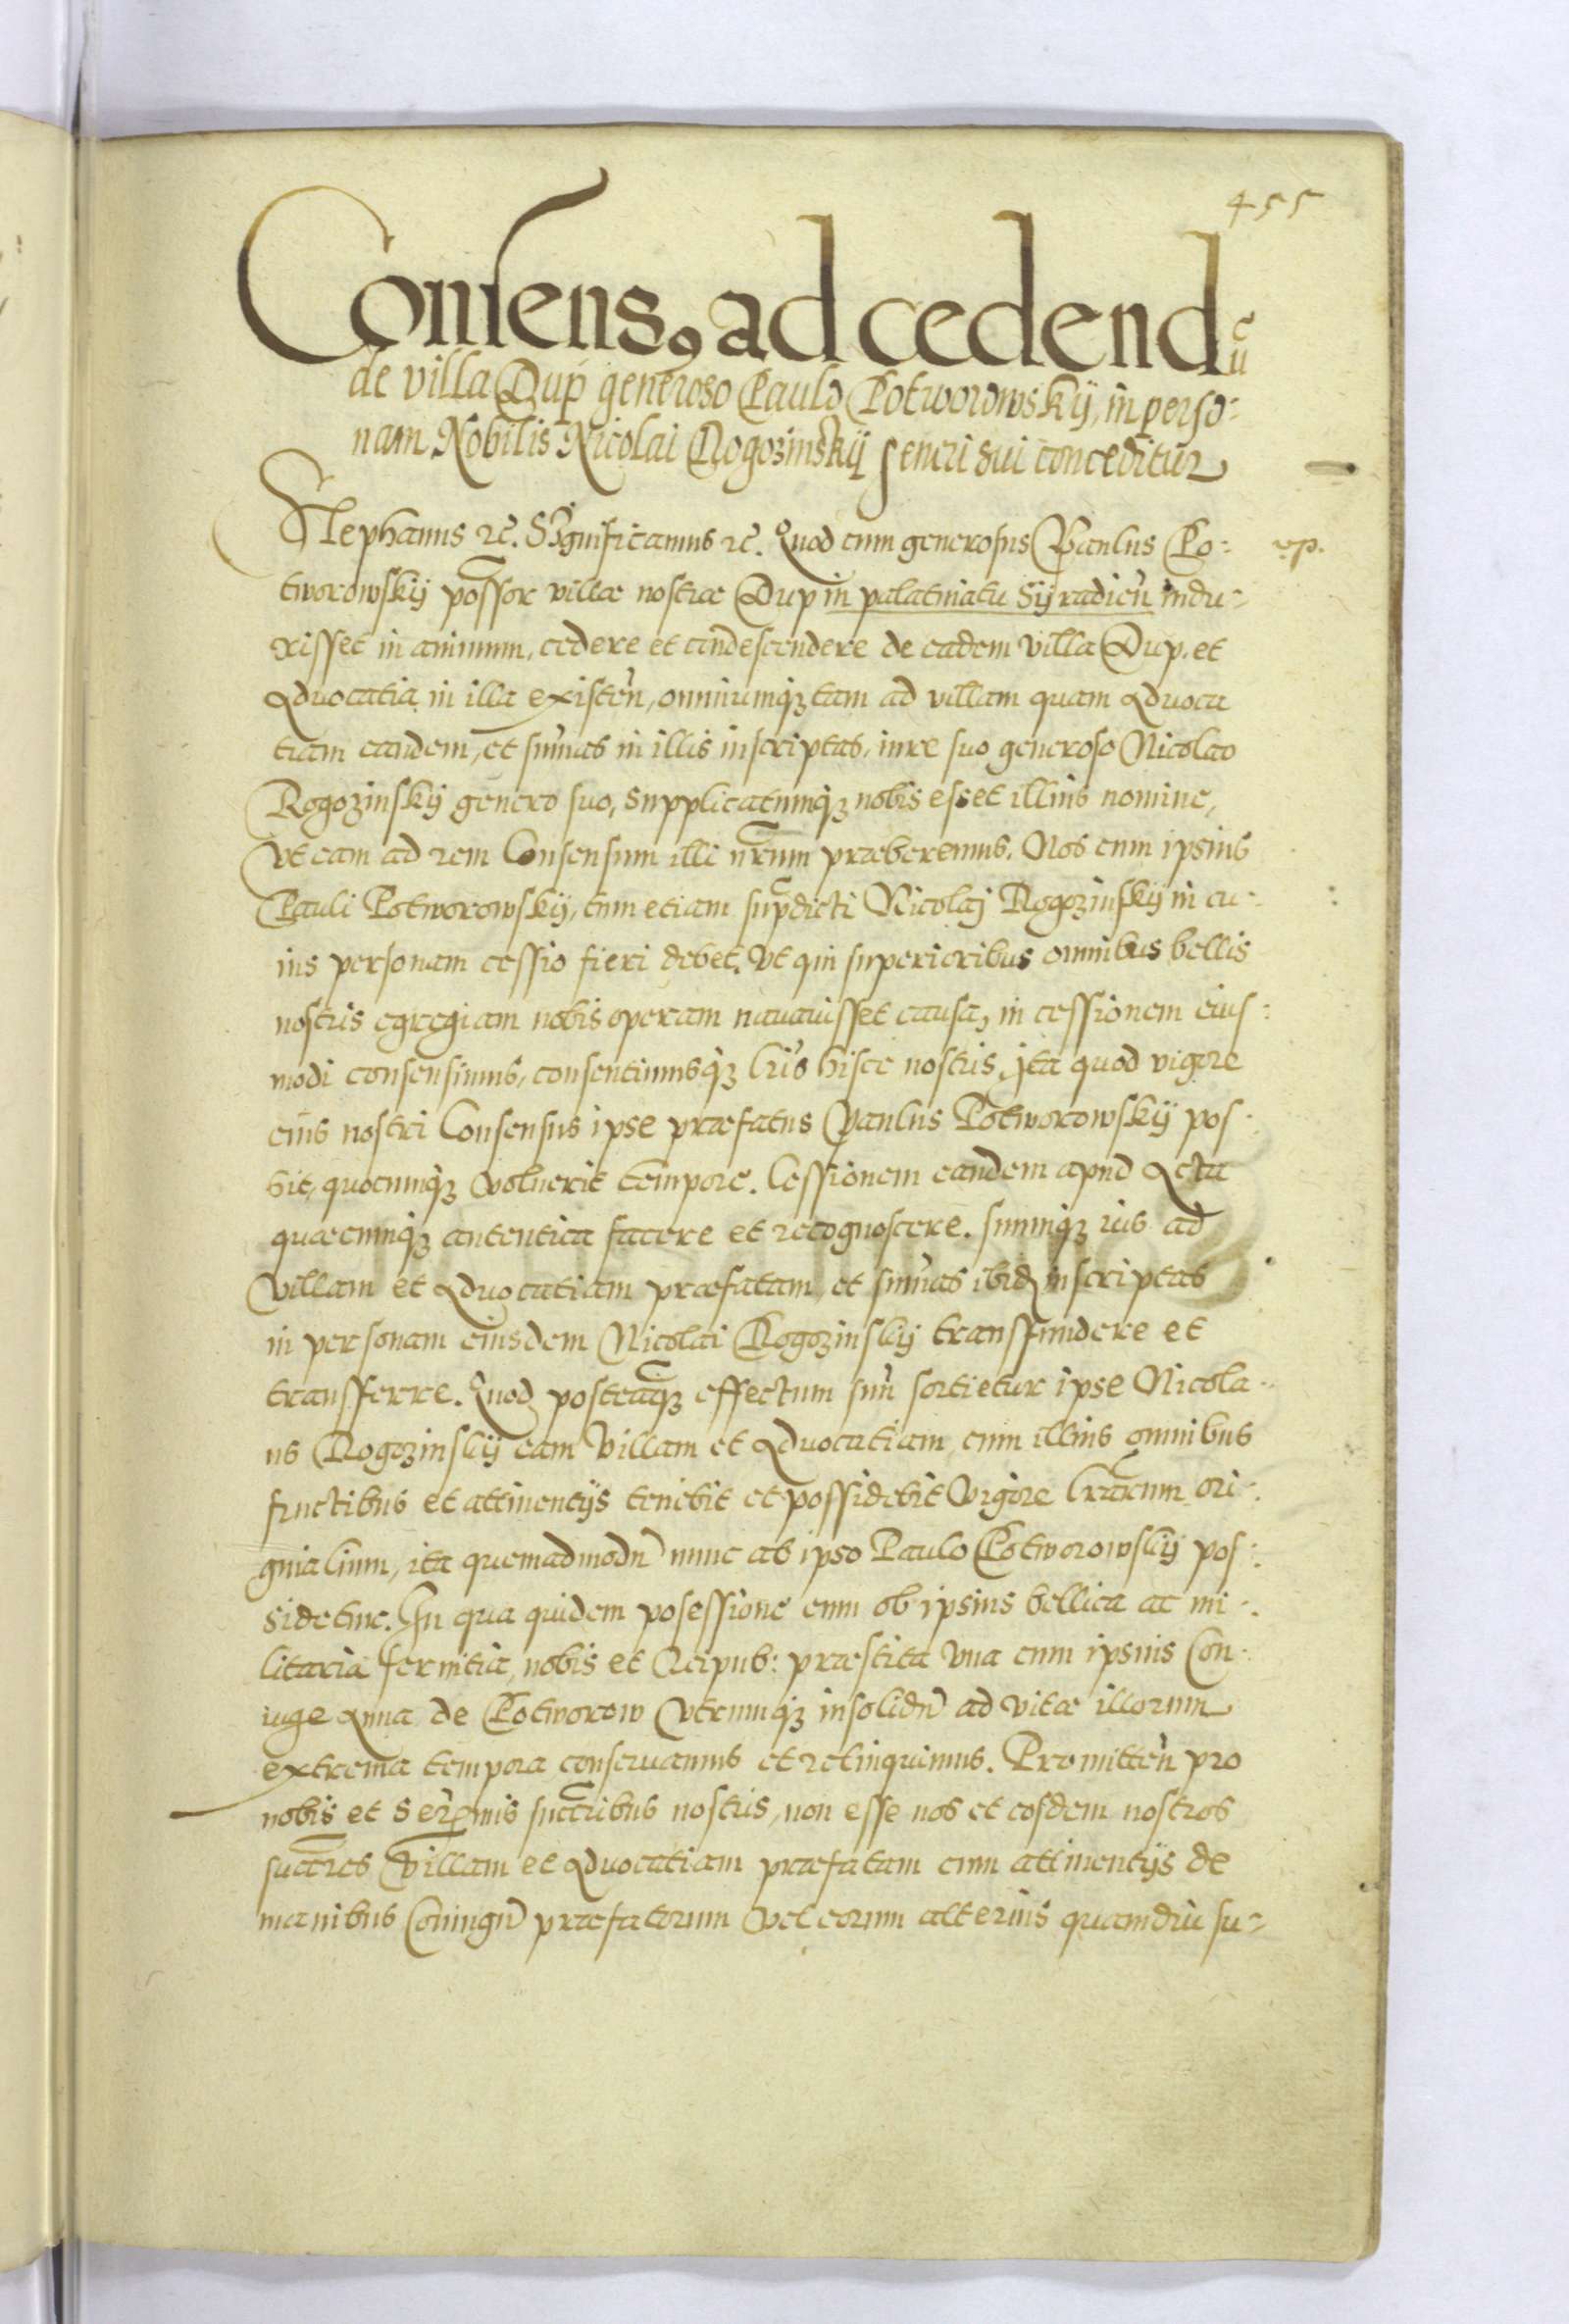 455
Consens9 ad cedendū
de villa Dup generoso Paulo Potworowskÿ, in perso=
nam Nobilis Nicolai Rogozinskÿ generi sui conceditur
Stephanus rc. Significamus rc. Quod cum generosus Paulus Po=
tworowskÿ possor villæ nostræ Dup in palatinatu Sÿradieñ indu=
xisset in animum, cedere et condescendere de eadem villa Dup. et
Aduocatia in illa existeñ, omniumqꝫ tam ad villam quam Aduoca
tiam eandem, et sum̃as in illis inscriptas, iure suo generoso Nicolao
Rogozinskÿ genero suo, supplicatumqꝫ nobis esset illius nomine,
Vt eam ad rem Consensum illi nr̃um præberemus. Nos cum ipsius
Pauli Potworowskÿ, tum etiam supdicti Nicolaj Rogozinskÿ in cu=
ius personam cessio fieri debet, Vt qui superioribus omnibus bellis
nostris egregiam nobis operam nauauisset causa, in cessionem eius=
modi consensimus, consentimusqꝫ lr̃is hisce nostris, jta quod vigore
eius nostri Consensus ipse præfatus Paulus Potworowskÿ pos=
bit, quocumqꝫ voluerit tempore. Cessionem eandem apud Acta
quæcumqꝫ autentica facere et recognoscere. suumqꝫ ius ad
Villam et Aduocatiam præfatam, et sum̃as ibidꝫ inscriptas
in personam eiusdem Nicolai Rogozinskÿ transfundere et
transferre. Quod posteaqꝫ effectum suũ sortietur ipse Nicola=
us Rogozinskÿ eam Villam et Aduocatiam, cum illius omnibus
fructibus et attinentÿs tenebit et possidebit Vigore lr̃arum ori=
ginalium, ita quemadmodũ nunc ab ipso Paulo Potworowskÿ pos=
sidetur. In qua quidem posessione cum ob ipsius bellica ac mi=
litaria seruitia, nobis et Reipub: præstita Vna cum ipsius Con=
iuge Anna de Potworow Vtrumqꝫ insolidũ ad vitæ illorum
extrema tempora conseruamus et relinquimus. Promitteñ pro
nobis et Ser̃mis succribus nostris, non esse nos et eosdem nostros
succres Villam et Aduocatiam præfatam cum attinentÿs de
manibus Coniugũ præfatorum Vel eorum alterius quamdiu su=